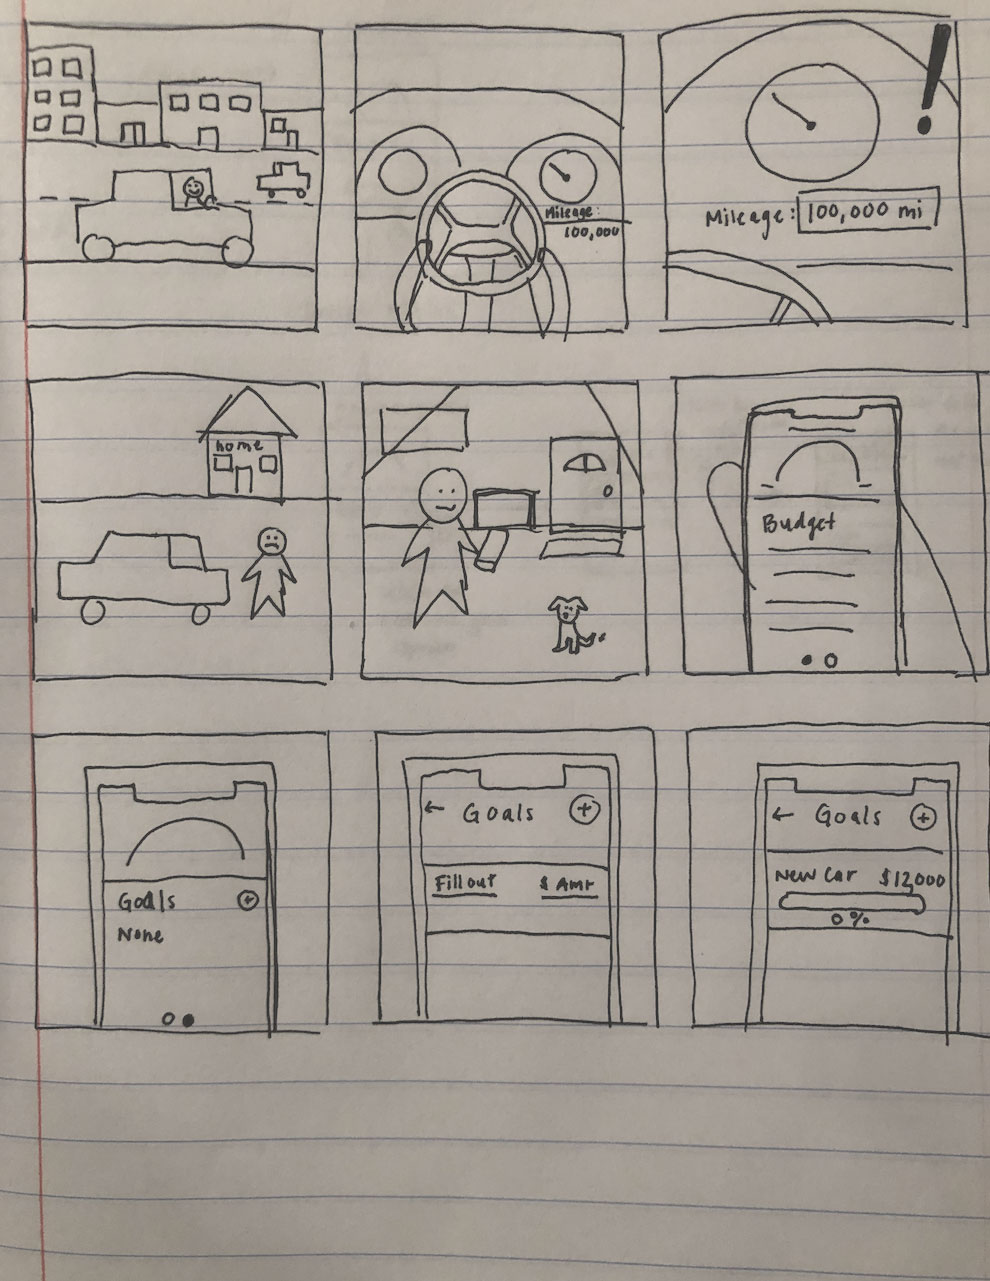 Mileage:
100,000
!
Mileage: 100,000 mi
home
Budget
Goals +
None
← Goals +
Fill out $ Amt
← Goals +
New Car $12,000
0%